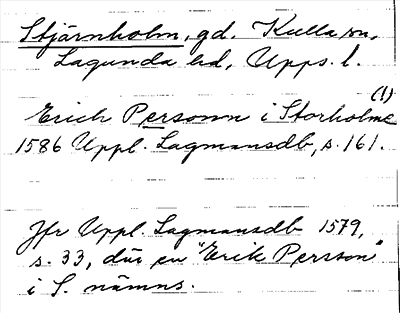 Stjärnholm, gd. Kulla sn,
Lagunda hd, Upps. l.
(1)
Erich Personn i Storholme
1586 Uppl. Lagmansdb, s. 161.
Jfr Uppl. Lagmansdb 1579,
s. 33, där en "Erik Persson"
i S. nämns.